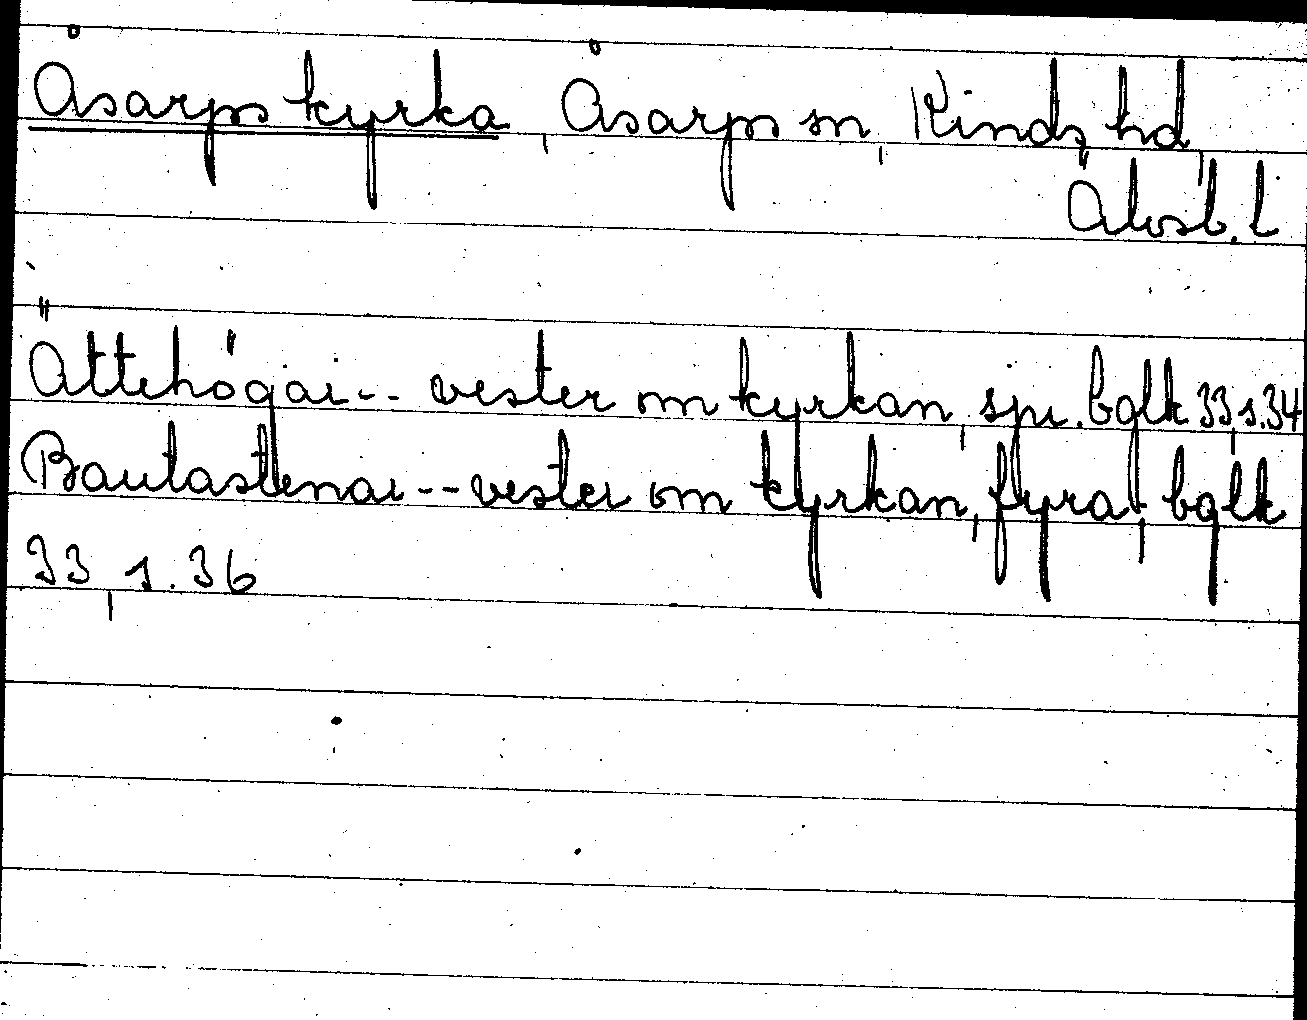 Åsarps kyrka, Åsarps sn, Kinds hd,
Älvsb. l
Ättehögar -- vester om kyrkan, spr. bglk 33, s. 34
Bautastenar -- vester om kyrkan, fyra, bglk
33, s. 36